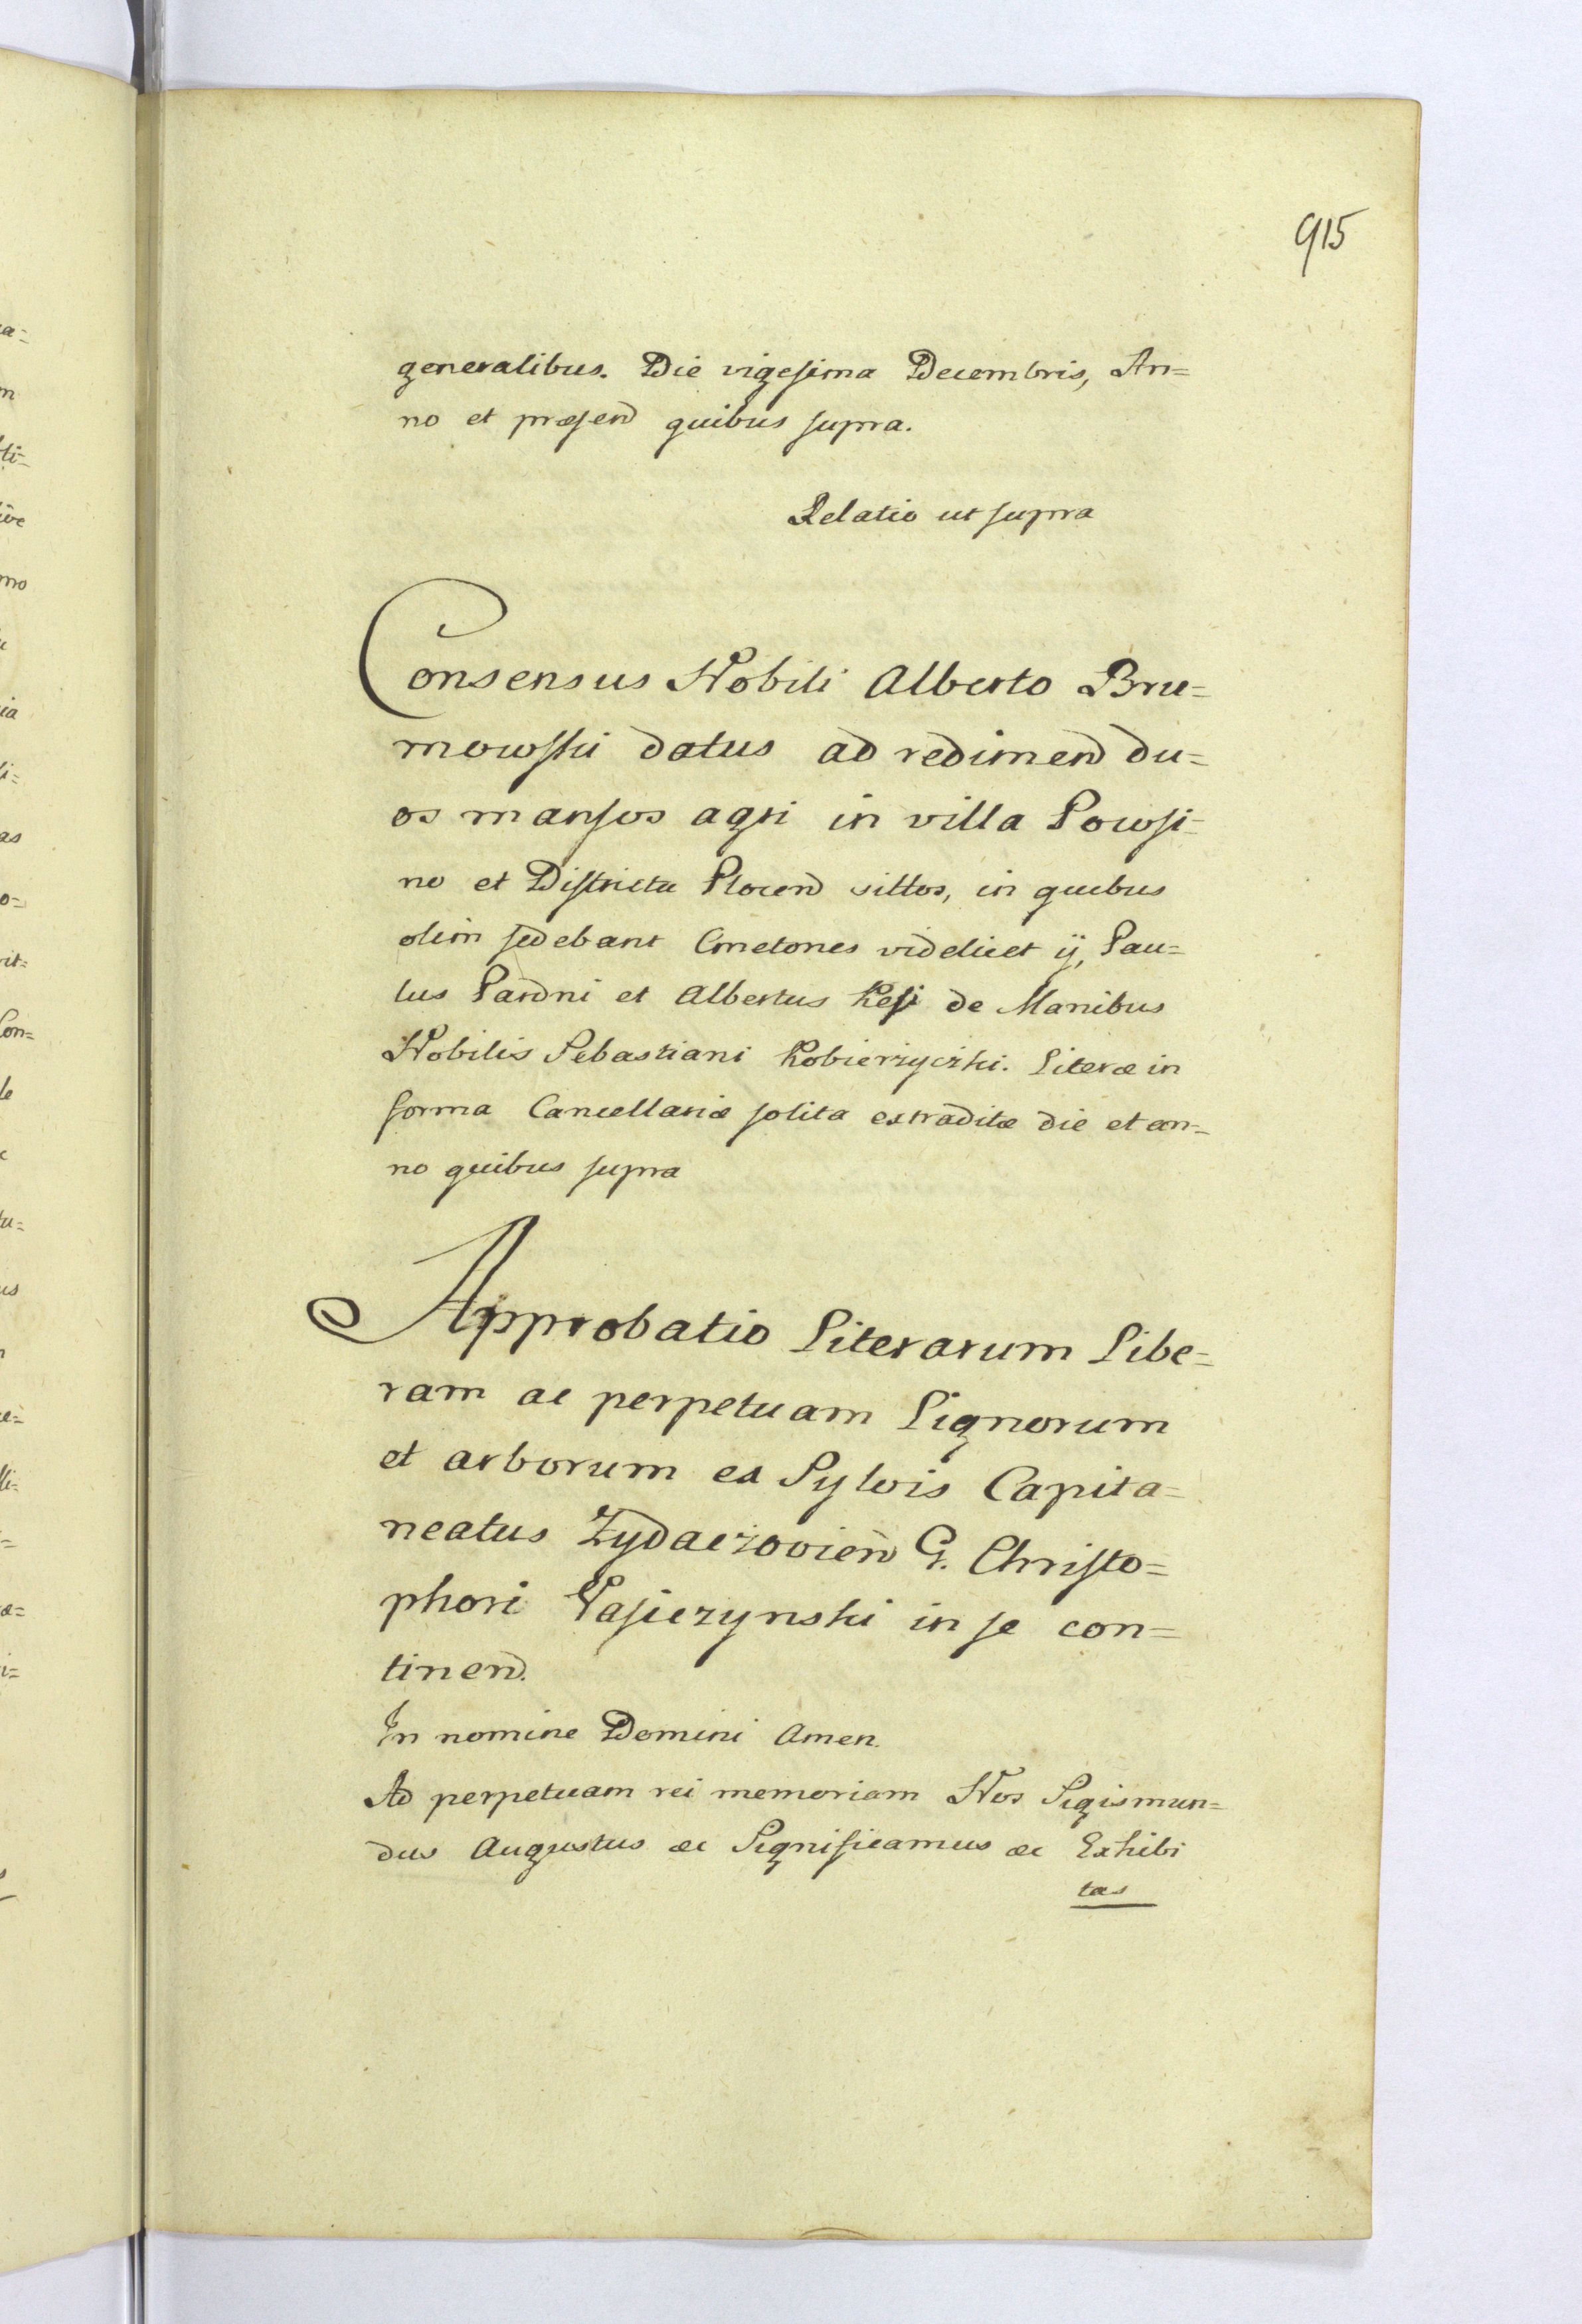 915
generalibus. Die vigesima Decembris, An=
no et præsend quibus supra.
Relatio ut supra
Consensus Nobili Alberto Bru=
mowski datus ad redimend du=
os mansos agri in villa Powsi=
no et Districtu Plocen sittos, in quibus
olim sedebant Cmetones videlicet ij, Pau=
lus Pardni et Albertus Kesi de Manibus
Nobilis Sebastiani Kobierzyczki. Literæ in
forma Cancellariæ solita extraditæ die et an=
no quibus supra
Approbatio Literarum Libe=
ram ac perpetuam Lignorum
et arborum ex Sylvis Capita=
neatus Zydaczovien G. Christo=
phori in se con=
tinend.
In nomine Domini Amen.
Ad perpetuam rei memoriam Nos Sigismun=
dus Augustus &c Significamus &c Exhibi
tas